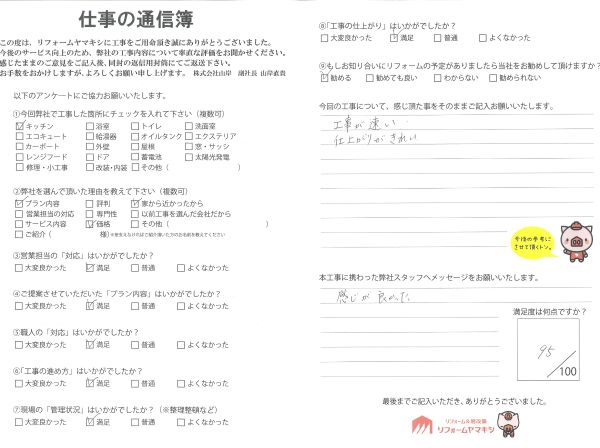 仕事の通信簿
この度は、リフォームヤマキシに工事をご用命頂き誠にありがとうございました。
今後のサービス向上のため、弊社の工事内容について率直な評価をお聞かせください。
感じたままのご意見をご記入後、同封の返信用封筒にてご返送下さい。
お手数をおかけしますが、よろしくお願い申し上げます。 株式会社山岸 副社長 山岸直貴
以下のアンケートにご協力お願いいたします。
①今回弊社で工事した箇所にチェックを入れて下さい（複数可）
☑キッチン □浴室 □トイレ □洗面室
□エコキュート □給湯器 □オイルタンク □エクステリア
□カーポート □外壁 □屋根 □窓・サッシ
□レンジフード □ドア □蓄電池 □太陽光発電
□修理・小工事 □改装・内装 □その他（ ）
②弊社を選んで頂いた理由を教えて下さい（複数可）
☑プラン内容 □評判 ☑家から近かったから
□営業担当の対応 □専門性 □以前工事を選んだ会社だから
□サービス内容 ☑価格 □その他（ ）
□ご紹介（ 様）※差支えなければご紹介頂いた方のお名前を教えてください
③営業担当の「対応」はいかがでしたか？
□大変良かった ☑満足 □普通 □よくなかった
④ご提案させていただいた「プラン内容」はいかがでしたか？
□大変良かった ☑満足 □普通 □よくなかった
⑤職人の「対応」はいかがでしたか？
□大変良かった ☑満足 □普通 □よくなかった
⑥「工事の進め方」はいかがでしたか？
□大変良かった ☑満足 □普通 □よくなかった
⑦現場の「管理状況」はいかがでしたか？（※整理整頓など）
□大変良かった ☑満足 □普通 □よくなかった
⑧「工事の仕上がり」はいかがでしたか？
□大変良かった ☑満足 □普通 □よくなかった
⑨もしお知り合いにリフォームの予定がありましたら当社をお勧めして頂けますか？
☑勧める □勧めても良い □わからない □勧められない
今回の工事について、感じた事をそのままご記入お願いいたします。
工事が速い.
仕上がりがきれい
今後の参考に
させて頂くトン。
本工事に携わった弊社スタッフへメッセージをお願いいたします。
感じが良かった
満足度は何点ですか？
95
/100
最後までご記入いただき、ありがとうございました。
リフォーム&増改築
リフォームヤマキシ